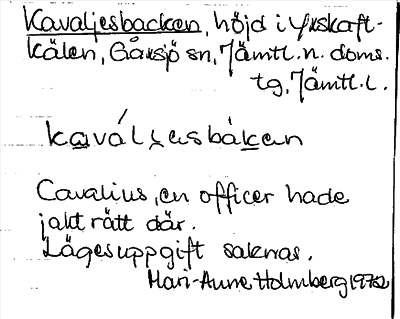 Kavaljesbacken, höjd i Yxskaft-
kälen, Gåxsjö sn, Jämtl. n. doms.
tg, Jämtl. l.
kavályesbáken
Cavalius, en officer hade
jakträtt där.
Lägesuppgift saknas.
Mari-Anne Holmberg 1972